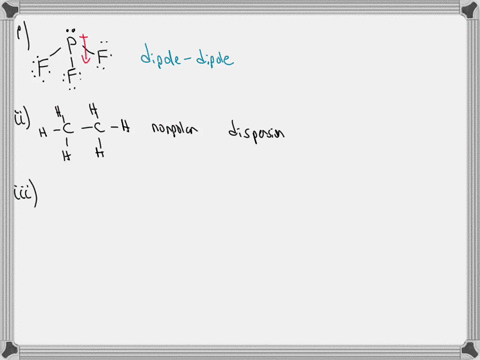 i)
P
F F F
dipole-dipole
ii)
H H
H-C-C-H nonpolar dispersion
H H
iii)